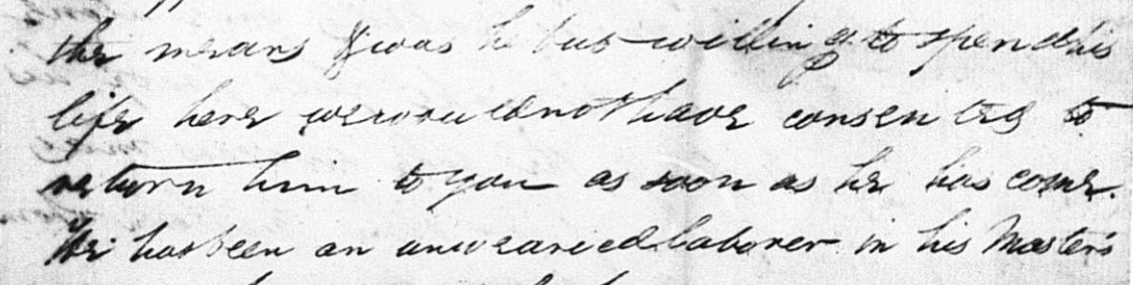 the means & was he but willing to spend his
life here we would not have consented to
return him to you as soon as he has come.
He has been an unwearied laborer in his Master's